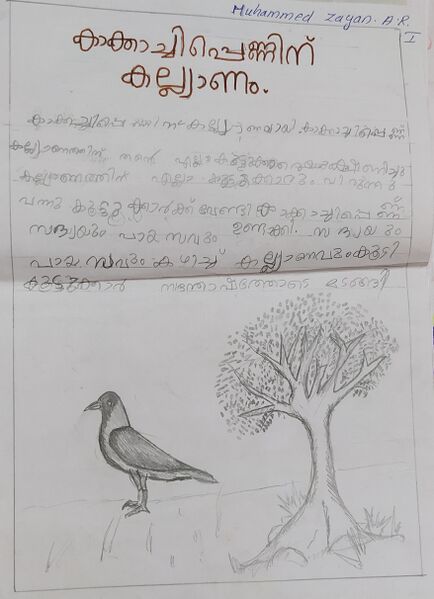 Muhammed Zayan. A.R.
I
കാക്കാച്ചിപ്പെണ്ണിന്
കല്ല്യാണം.
കാക്കാച്ചിപ്പെണ്ണിന് കല്ല്യാണമായി കാക്കാച്ചിപ്പെണ്ണ്
കല്ല്യാണത്തിന് തൻ്റെ എല്ലാ കൂട്ടുകാരെയും ക്ഷണിച്ചു
കല്ല്യാണത്തിന് എല്ലാ കൂട്ടുക്കാറും വിരുന്നു
വന്നു കൂട്ടുക്കാർക്ക് വേണ്ടി കാക്കാച്ചിപ്പെണ്ണ്
സദ്യയും പായസവും ഉണ്ടക്കി. സദ്യയും
പായസവും കഴിച്ച് കല്ല്യാണവും കൂടി
കൂട്ടുക്കാർ സന്തോഷത്തോടെ മടങ്ങി